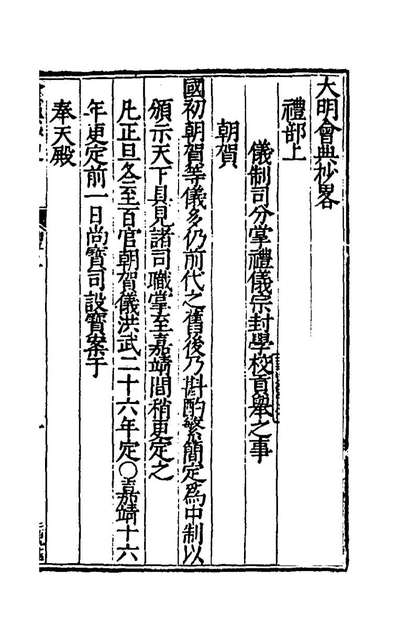 大明會典抄畧
禮部上
儀制司分掌禮儀宗封學校貢舉之事
朝賀
國初朝賀等儀多仍前代之舊後乃斟酌繁簡定爲中制以
頒示天下具見諸司職掌至嘉靖間稍更定之
凡正旦冬至百官朝賀儀洪武二十六年定○嘉靖十六
年更定前一日尚寶司設寶案于
奉天殿